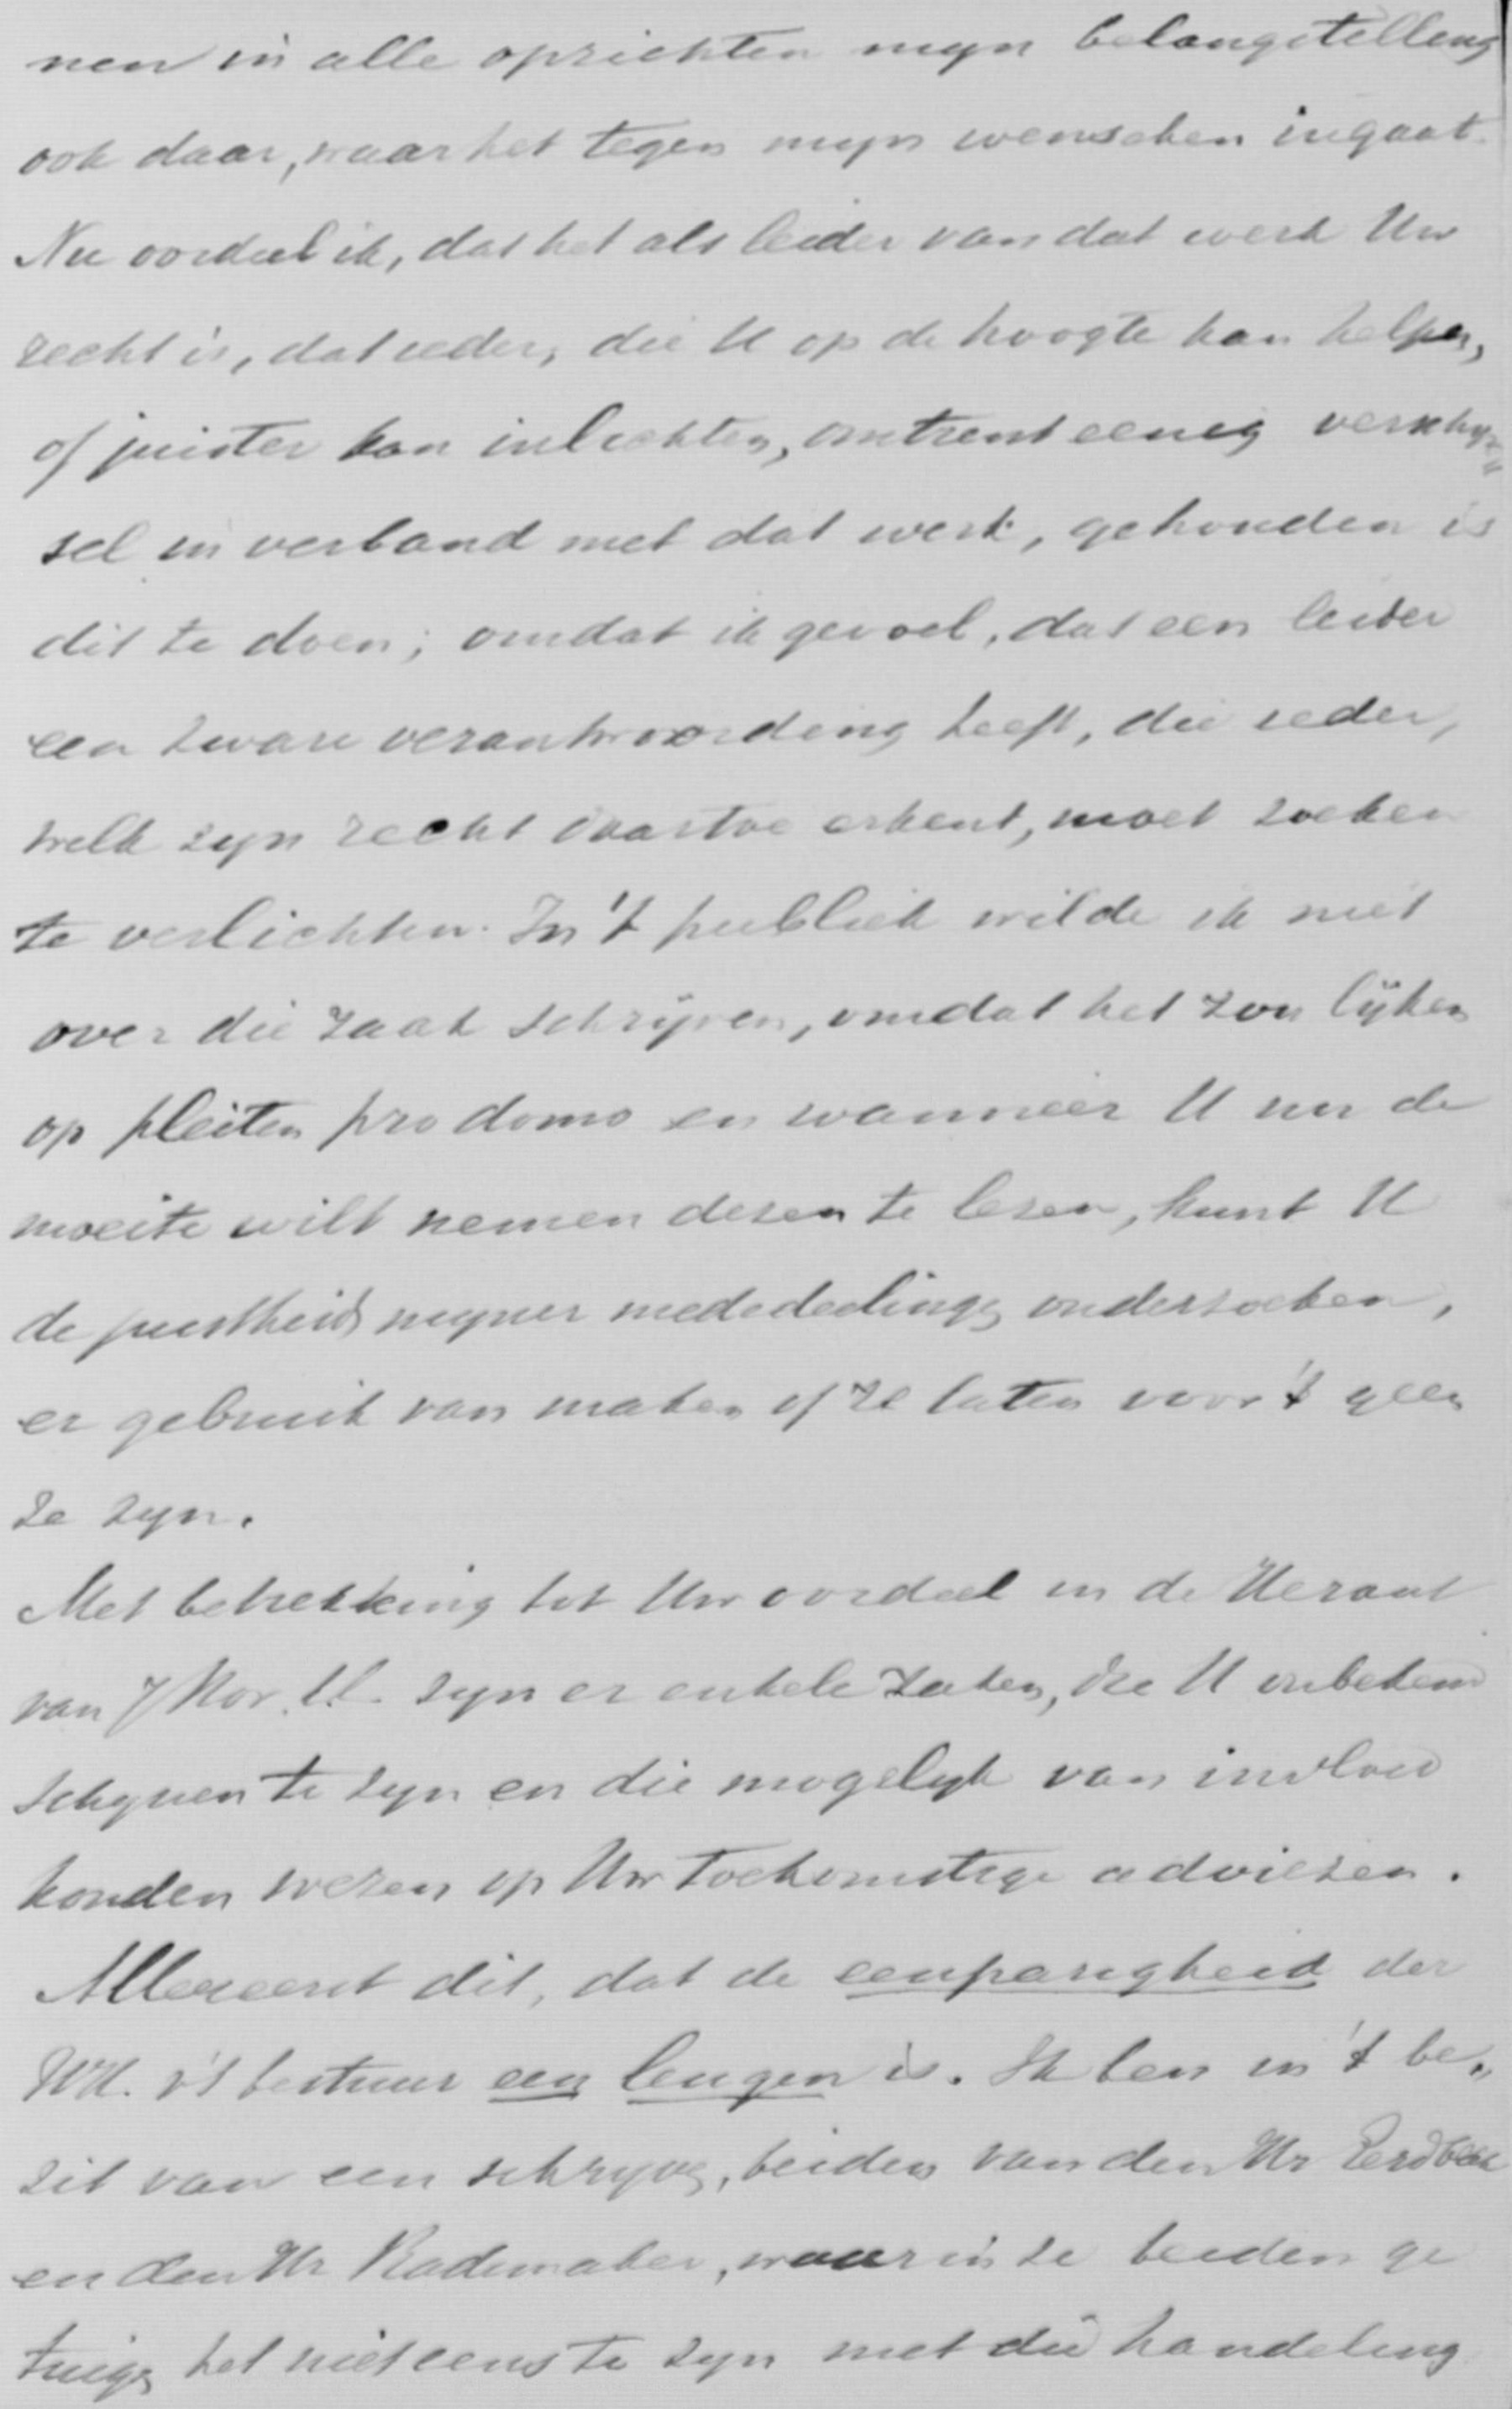 nen in alle opzichten mijn belangstelling
ook daar, waar het tegen mijn wenschen ingaat.
Nu oordeel ik, dat het als leider van dat werk Uw
recht is, dat ieder, die U op de hoogte kan helpen,
of juister kan inlichten, omtrent eenig verschijn„
sel in verband met dat werk, gehouden is
dit te doen; omdat ik gevoel, dat een leider
een zware verantwoording heeft, die ieder,
welk zijn recht daartoe erkent, moet zoeken
te verlichten. In 't publiek wilde ik niet
over die zaak schrijven, omdat het zou lijken
op pleiten pro domo en wanneer U nu de
moeite wilt nemen dezen te lezen, kunt U
de juistheid mijner mededeelings onderzoeken,
er gebruik van maken of ze laten voor 't geen
ze zijn.
Met betrekking tot Uw oordeel in de Heraut
van 7 Nov. ll. zijn er enkele zaken, die U onbekend
schijnen te zijn en die mogelijk van invloed
konden wezen op Uw toekomstige adviezen.
Allereerst dit, dat de eenparigheid der
WH. v/t bestuur een leugen is. Ik ben in 't be„
zit van een schrijven, beiden van den Hr
en den Hr Rademaker, waarin ze beiden ge
tuigen het niet eens te zijn met die handeling